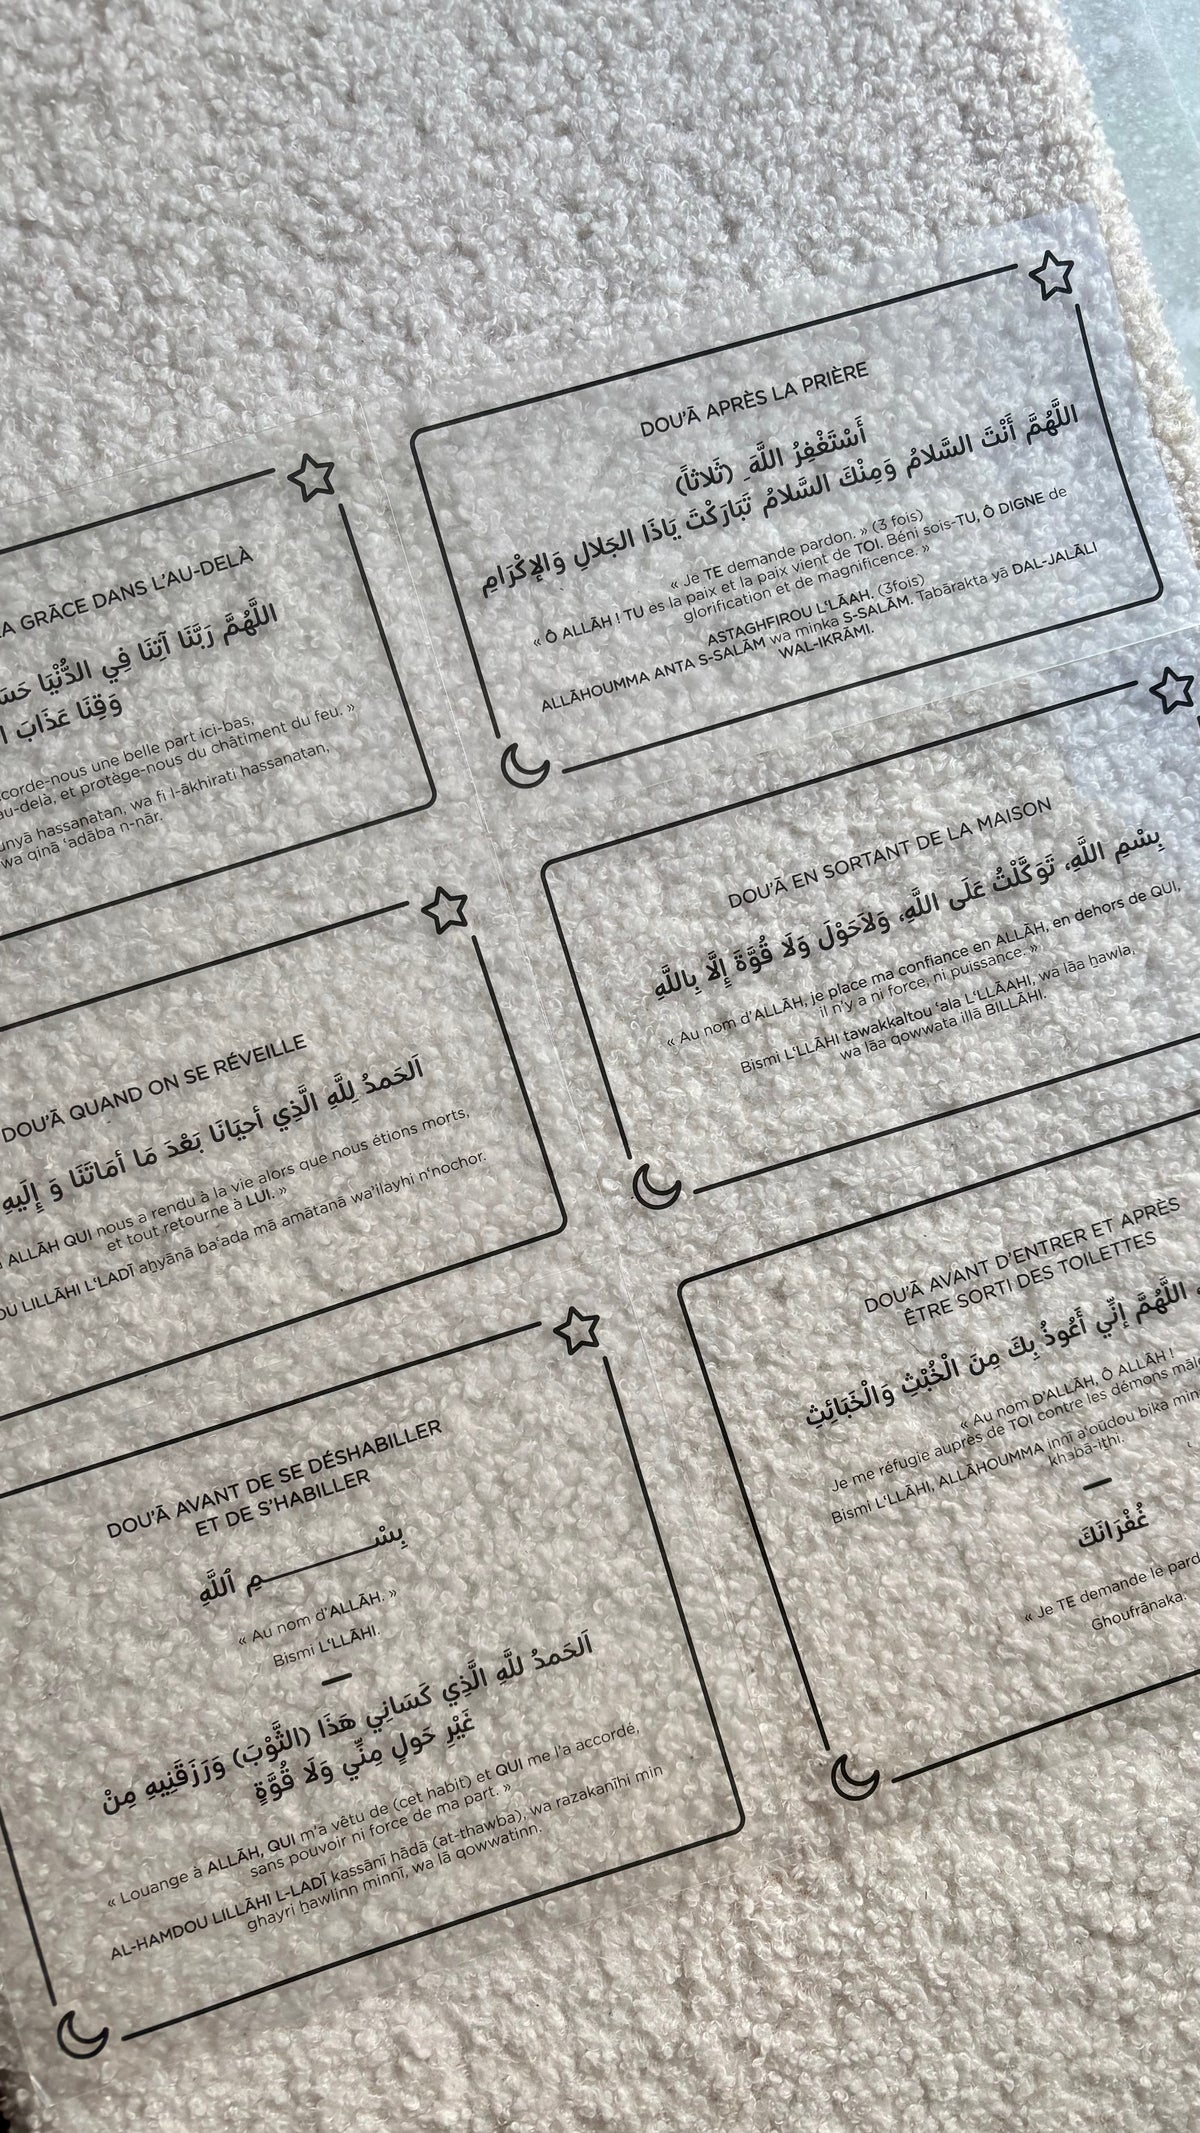 DOU'Ā APRÈS LA PRIÈRE
أَسْتَغْفِرُ اللَّهَِ (ثَلاثاً)
اللَّهُمَّ أَنْتَ السَّلامُ وَمِنْكَ السَّلامُ تَبَارَكْتَ يَاذَا الجَلالِ وَالإِكْرَامِ
« Je TE demande pardon. » (3 fois)
« Ô ALLĀH ! TU es la paix et la paix vient de TOI. Béni sois-TU, Ô DIGNE de
glorification et de magnificence. »
ASTAGHFIROU L'LĀAH. (3fois)
ALLĀHOUMMA ANTA S-SALĀM wa minka S-SALĀM. Tabārakta yā DAL-JALĀLI
WAL-IKRĀMI.
GRĀCE DANS L'AU-DELÀ
اللَّهُمَّ رَبَّنَا آتِنَا فِي الدُّنْيَا
وَقِنَا عَذَابَ
une belle part ici-bas,
et protège-nous du châtiment du feu. »
hassanatan, wa fi l-ākhirati hassanatan,
wa qinā 'adāba n-nār.
DOU'Ā EN SORTANT DE LA MAISON
بِسْمِ اللَّهِ، تَوَكَّلْتُ عَلَى اللَّهِ، وَلاَحَوْلَ وَلَا قُوَّةَ إِلَّا بِاللَّهِ
« Au nom d'ALLĀH, je place ma confiance en ALLĀH, en dehors de QUI,
il n'y a ni force, ni puissance. »
Bismi L'LLĀHI tawakkaltou 'ala L'LLĀAHI, wa lāa ẖawla,
wa lāa qowwata illā BILLĀHI.
DOU'Ā QUAND ON SE RÉVEILLE
اَلحَمدُ لِلَّهِ الَّذِي أحيَانَا بَعْدَ مَا أمَاتَنَا وَ إِلَيهِ
ALLĀH QUI nous a rendu à la vie alors que nous étions morts,
et tout retourne à LUI. »
LILLĀHI L'LADĪ aẖyānā ba'ada mā amātanā wa'ilayhi n'nochor.
DOU'Ā AVANT D'ENTRER ET APRÈS
ÊTRE SORTI DES TOILETTES
اللَّهُمَّ إِنِّي أَعُوذُ بِكَ مِنَ الْخُبْثِ وَالْخَبَائِثِ
« Au nom D'ALLĀH, Ô ALLĀH !
Je me réfugie auprès de TOI contre les démons
Bismi L'LLĀHI, ALLĀHOUMMA innī a'oūdou bika
khabā-ithi.
غُفْرَانَكَ
« Je TE demande le
Ghoufrānaka.
DOU'Ā AVANT DE SE DÉSHABILLER
ET DE S'HABILLER
بِسْــــــــمِ ٱللَّهِ
« Au nom d'ALLĀH. »
Bismi L'LLĀHI.
اَلحَمدُ للَّهِ الَّذِي كَسَانِي هَذَا (الثَّوْبَ) وَرَزَقَنِيهِ مِنْ
غَيْرِ حَولٍ مِنِّي وَلَا قُوَّةٍ
« Louange à ALLĀH, QUI m'a vêtu de (cet habit) et QUI me l'a accordé,
sans pouvoir ni force de ma part. »
AL-HAMDOU LILLĀHI L-LADĪ kassānī hādā (at-thawba), wa razakanīhi min
ghayri ẖawlinn minnī, wa lā qowwatinn.